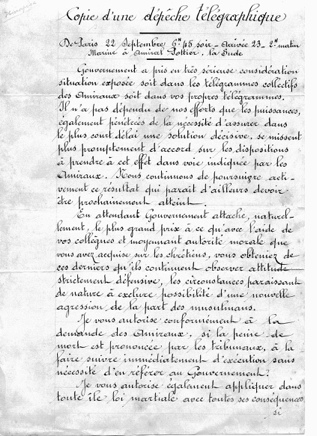 Copie d'une dépêche télégraphique
De Paris 22 Septembre 6h 45 soir - Arrivée 23 - 2h matin
Marine à Amiral Pottier, la Sude
Gouvernement a pris en très sérieuse considération
situation exposée soit dans les télégrammes collectifs
des Amiraux soit dans vos propres télégrammes.
Il n'a pas dépendu de nos efforts que les puissances,
également pénétrées de la nécessité d'assurer dans
le plus court délai une solution décisive, se missent
plus promptement d'accord sur les dispositions
à prendre à cet effet dans voie indiquée par les
Amiraux. Nous continuons de poursuivre acti-
vement ce résultat qui paraît d'ailleurs devoir
être prochainement atteint.
En attendant Gouvernement attache, naturel-
lement, le plus grand prix à ce qu'avec l'aide de
vos collègues et moyennant autorité morale que
vous avez acquise sur les chrétiens, vous obteniez de
ces derniers qu'ils continuent observer attitude
strictement défensive, les circonstances paraissant
de nature à exclure possibilité d'une nouvelle
agression de la part des musulmans.
Je vous autorise conformément à la
demande des Amiraux, si la peine de
mort est prononcée par les tribunaux, à la
faire suivre immédiatement d'exécution sans
nécessité d'en référer au Gouvernement.
Je vous autorise également appliquer dans
toute île loi martiale avec toutes ses conséquences